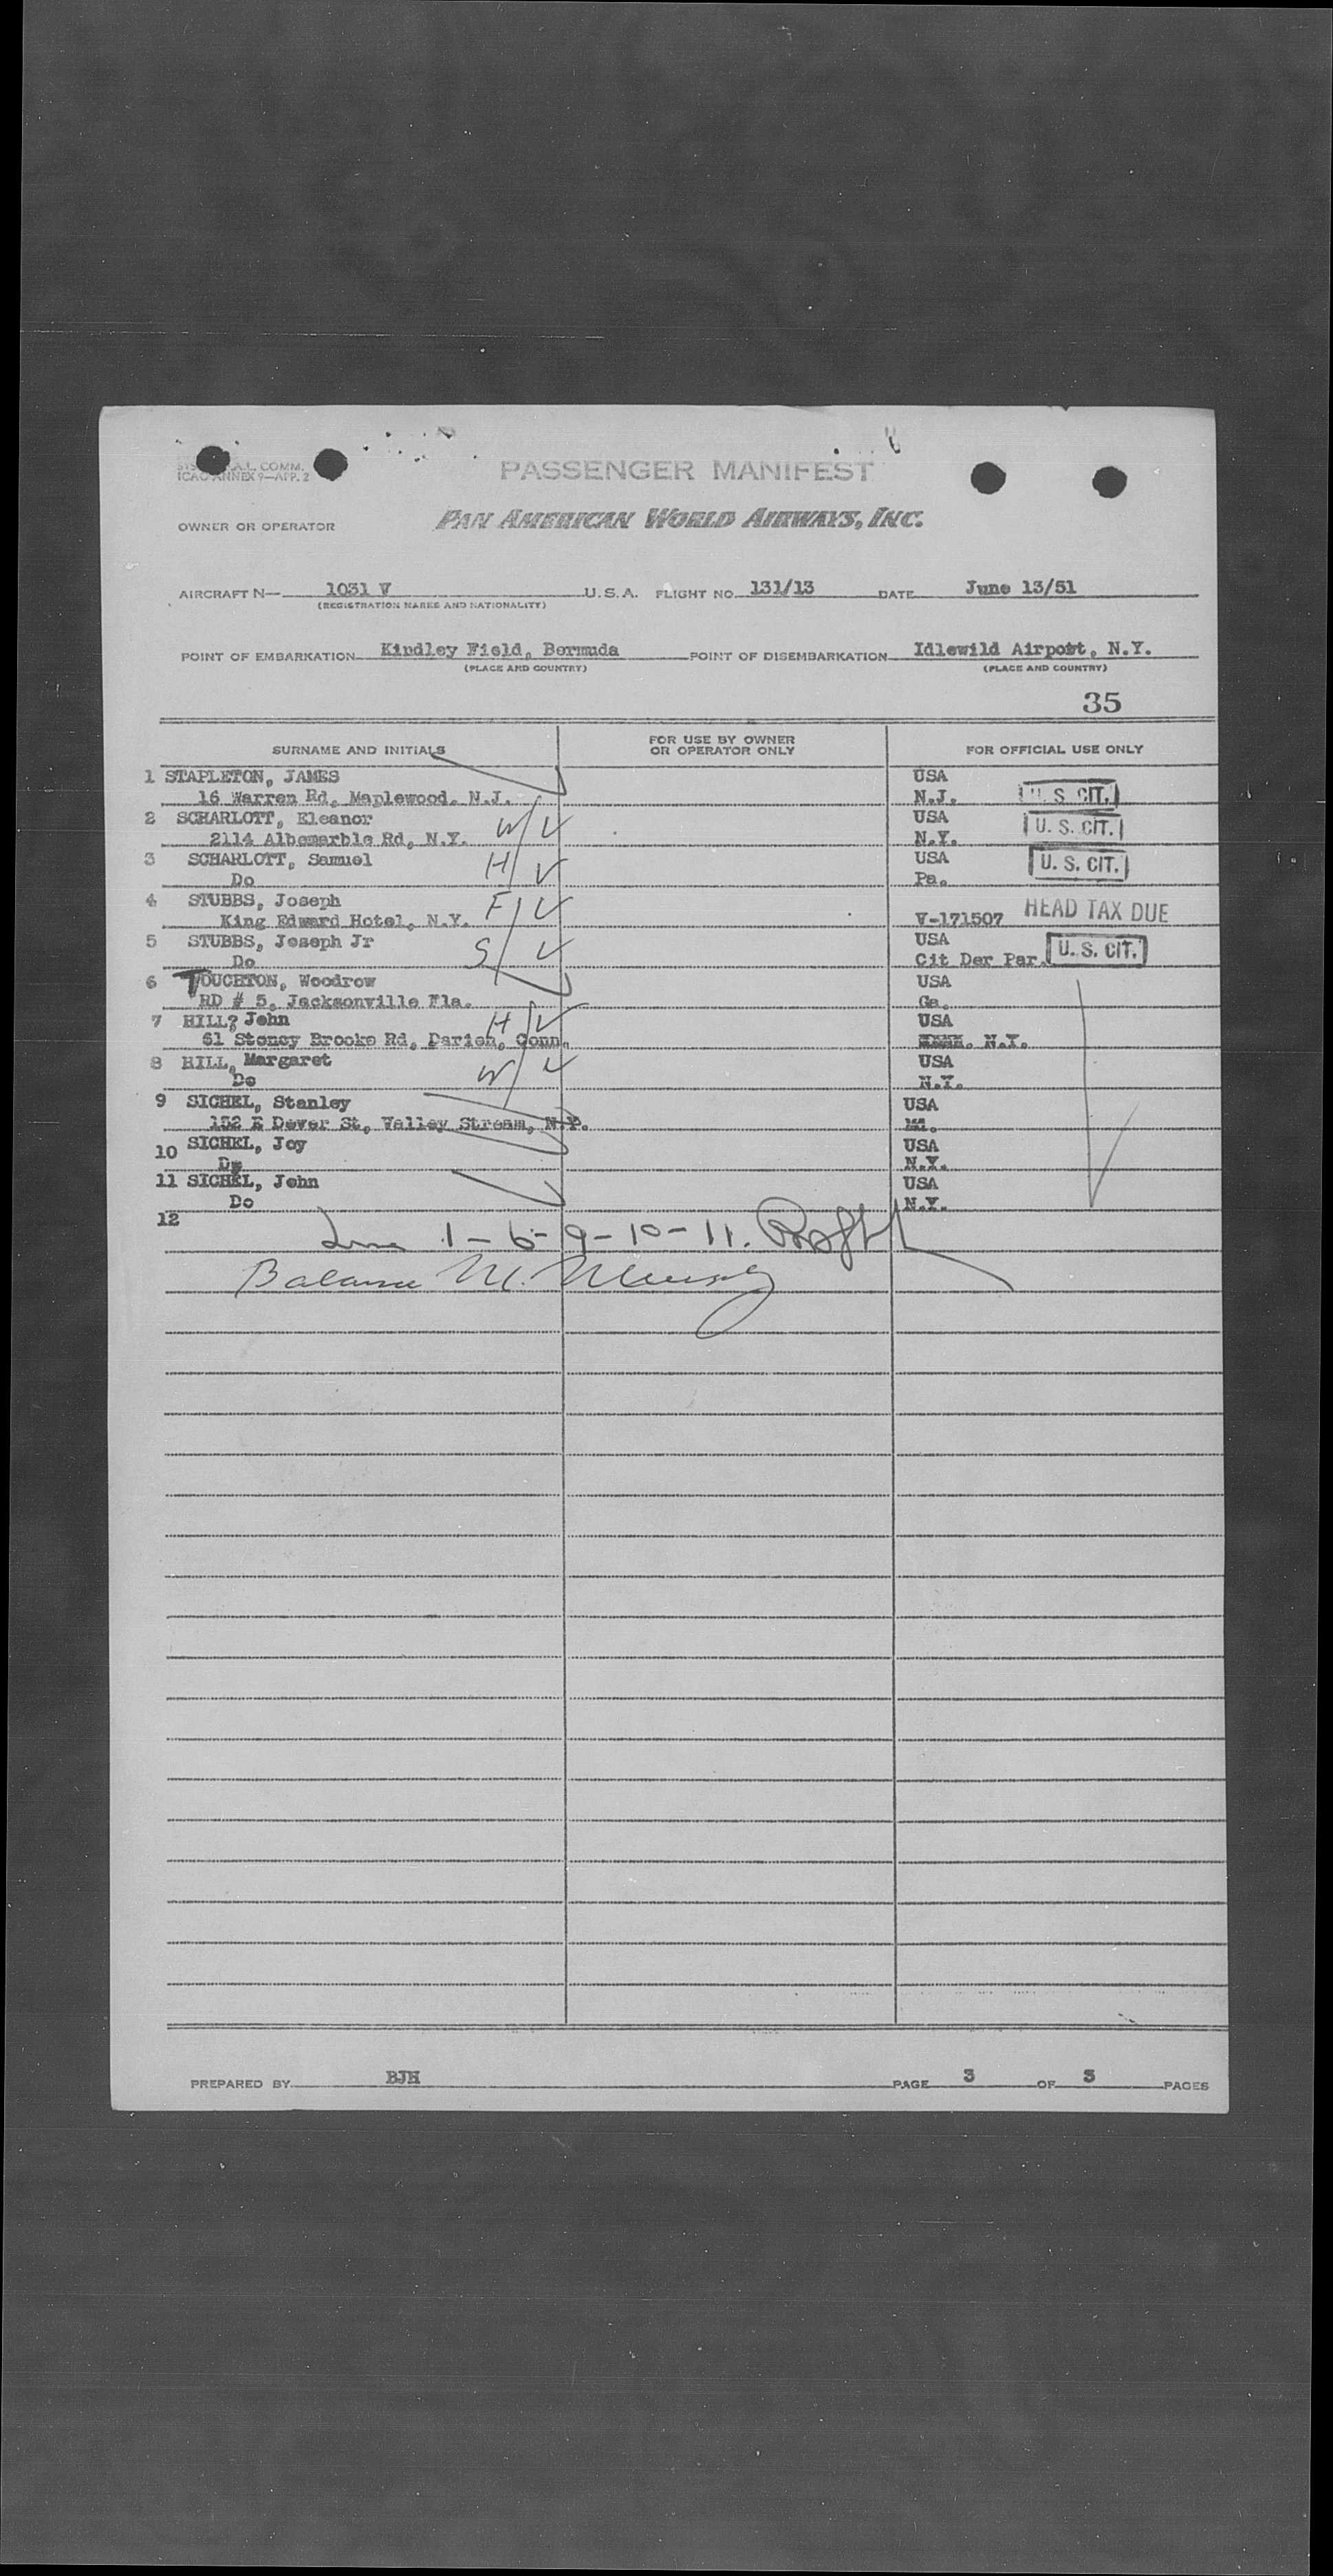 A.L. COMM.
ICAO ANNEX 9—APP. 2
PASSENGER MANIFEST
OWNER OR OPERATOR PAN AMERICAN WORLD AIRWAYS, INC.
AIRCRAFT N— 1031 V U.S.A. FLIGHT NO. 131/13 DATE June 13/51
(REGISTRATION MARKS AND NATIONALITY)
POINT OF EMBARKATION Kindley Field, Bermuda POINT OF DISEMBARKATION Idlewild Airport, N.Y.
(PLACE AND COUNTRY) (PLACE AND COUNTRY)
35
SURNAME AND INITIALS FOR USE BY OWNER OR OPERATOR ONLY FOR OFFICIAL USE ONLY
1 STAPLETON, JAMES USA
16 Warren Rd, Maplewood, N.J. N.J. U. S. CIT.
2 SCHARLOTT, Eleanor USA
2114 Albemarble Rd, N.Y. W N.Y. U. S. CIT.
3 SCHARLOTT, Samuel USA
Do H Pa. U. S. CIT.
4 STUBBS, Joseph
King Edward Hotel, N.Y. F V-171507 HEAD TAX DUE
5 STUBBS, Joseph Jr USA
Do S Cit Der Par. U. S. CIT.
6 TOUCHTON, Woodrow USA
RD # 5, Jacksonville Fla. Ga.
7 HILL? John USA
61 Stoney Brooke Rd, Darien, Conn. H N.Y.
8 HILL, Margaret USA
Do W N.Y.
9 SICHEL, Stanley USA
152 E Dover St, Valley Stream, N.Y.
10 SICHEL, Joy USA
Do N.Y.
11 SICHEL, John USA
Do N.Y.
12
Line 1 - 6 - 9 - 10 - 11.
Balance M.
PREPARED BY BJH PAGE 3 OF 3 PAGES